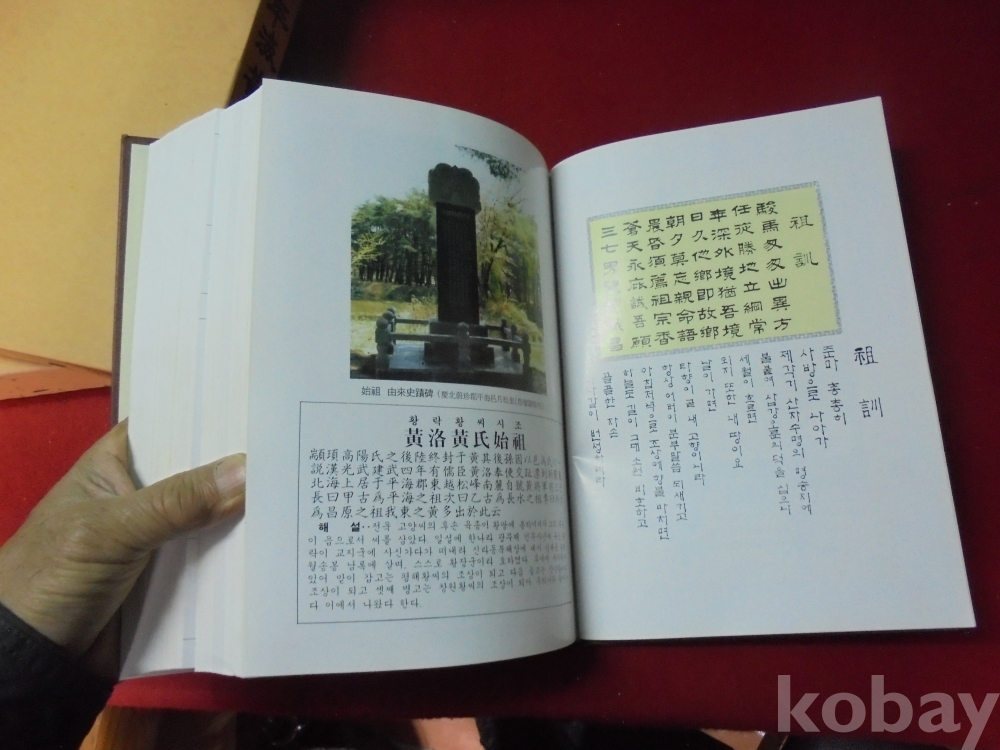 始祖 由來史蹟碑
황락황씨시조
黃洛黃氏始祖
顓頊高陽氏之後陸終封于黃其後孫因以邑爲氏
說漢光武建武四年有儒臣黃洛奉使交趾
北海上居于平海郡東越松峰南麓自號黃將軍
長曰甲古爲平海之祖次曰乙古爲長水之祖
爲昌原之祖我東之黃多出於此云
해 설‥전욱 고양씨의 후손 육종이 황땅에
이 읍으로서 씨를 삼았다. 일설에 한나라 광무제
락이 교지국에 사신가다가
월송봉 남록에 살며, 스스로 황장군이라
있어 맏이 갑고는 평해황씨의 조상이 되고
조상이 되고 셋째 병고는 창원황씨의 조상이 되
다 이에서 나왔다 한다.
祖訓
駿馬匆匆出異方
任從勝地立綱常
年深外境猶吾境
日久他鄕卽故鄕
朝夕莫忘親命語
晨昏須薦祖宗香
蒼天永庇誠吾願
三七男
祖訓
준마 총총히
사방으로 나아가
제각기 산자수명의 명승지에
세월이 흐르면
외지 또한 내 땅이요
날이 가면
타향이 곧 내 고향이니라
항상 어버이 분부말씀 되새기고
아침저녁으로 조상에 향을 바치면
하늘도 길이 그대 소원 비호하고
kobay